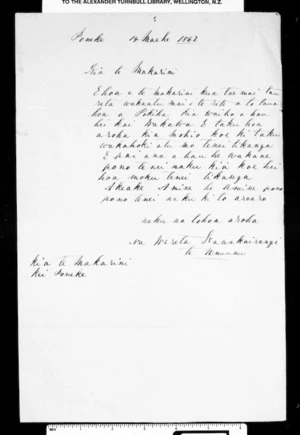 TO THE ALEXANDER TURNBULL LIBRARY, WELLINGTON, N.Z.
5
Poneke 14 Maehe 1862
Kia te Makarini
E hoa e te makarini kua tae mai tau
reta wakaatu mai i te rite a to taua
hoa a Pokiha kia waiho a hau
hei kai E taku hoa
aroha kia mohio koe ki taku
wakahoki atu mo tenei tikanga
E pai ana a hau he wakaae
pono tenei naku kia koe hei
hoa moku tenei tikanga
Ake ake Amine he Amine pono
pono tenei naku ki to aroaro
naku na to hoa aroha
Na Wereta
te
Kia te Makarini
kei Poneke